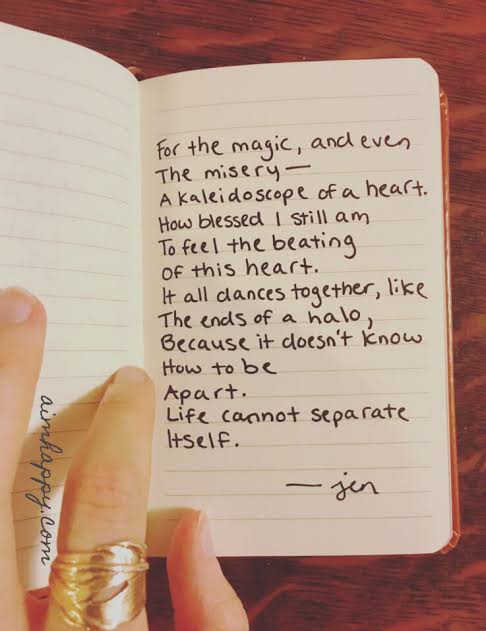 For the magic, and even
The misery—
A kaleidoscope of a heart.
How blessed I still am
To feel the beating
Of this heart.
It all dances together, like
The ends of a halo,
Because it doesn't know
How to be
Apart.
Life cannot separate
Itself.
— jen
aimhappy.com